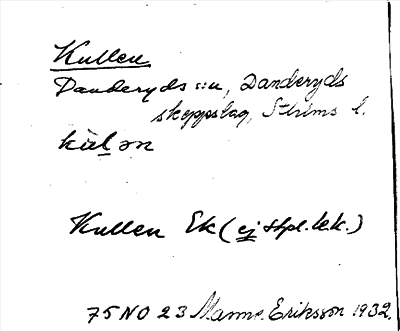 Kullen
Danderyds sn, Danderyds
skeppslag, Sthlms l.
kul ən
Kullen Ek (ej stpl.l.k.)
75 NO 23 Manne Eriksson 1932.